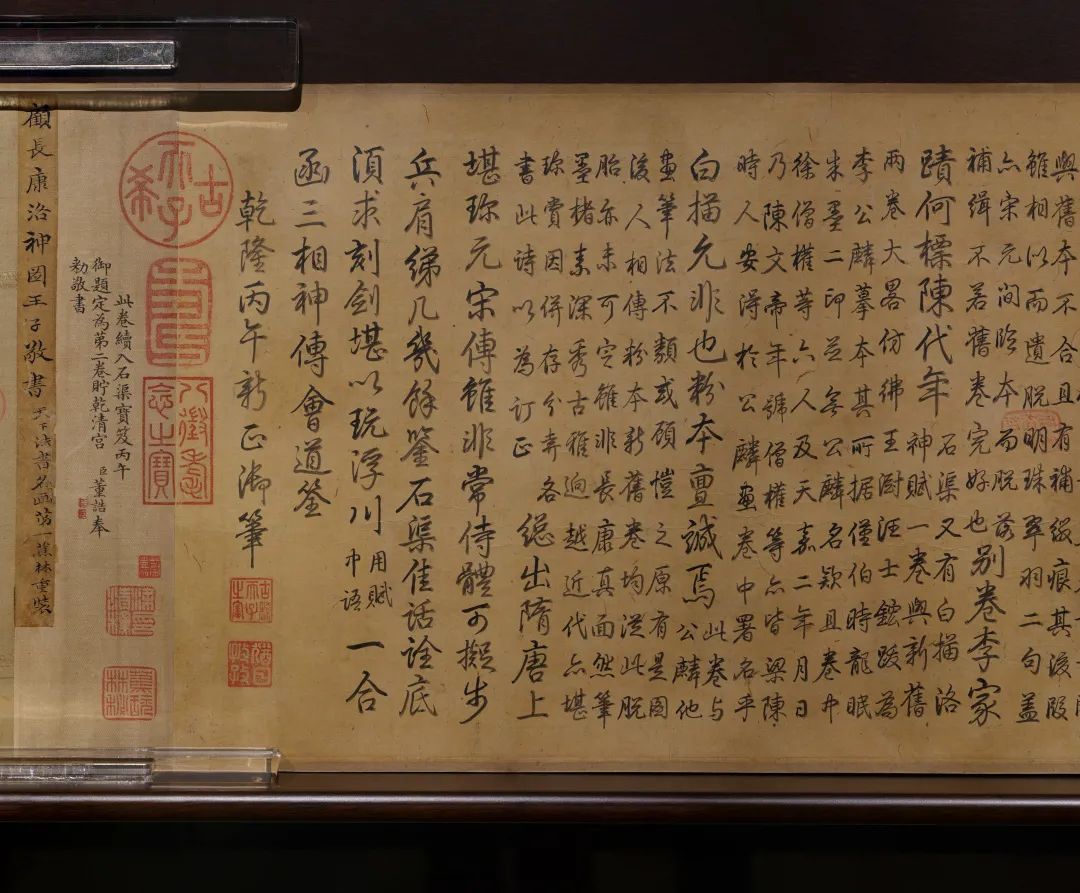 與舊本不合且有補綴痕其後段
雖相以而遺脫明珠翠羽二句蓋
亦宋元間臨本而脫落
補緝不若舊卷完好也別卷李家
蹟何標陳代年
石渠又有白描洛
神賦一卷與新舊
兩卷大畧仿彿王澍汪士鋐跋為
李公麟摹本其所據僧伯時龍眠
朱墨二印並無公麟名款且卷中
徐僧權等六人及天嘉二年月日
乃陳文帝年號僧權等亦皆梁陳
時人安得於公麟畫卷中署名乎
白描允非也粉本亶誠焉
此卷與
公麟他
畫筆法不類或顧愷之原有是圖
後人相傳粉本新舊卷均從此脫
胎亦未可定雖非長康真面然筆
墨楮素深秀古雅迥越近代亦堪
珍賞因併存分弆各
書此詩以為訂正
總出隋唐上
堪珍元宋傳雖非常侍體可擬步
兵肩綈几幾餘鑒石渠佳話詮底
須求刻劍堪以玩浮川
用賦
中語
一合
函三相神傳會道筌
乾隆丙午新正御筆
古稀天子之寶
猶日孜孜
古希天子
壽
八徵耄念之寶
此卷續入石渠寶笈丙午
御題定為第二卷貯乾清宮 臣董誥奉
勅敬書
顧長康洛神圖王子敬書 天下法書名畫第一蕉林重裝